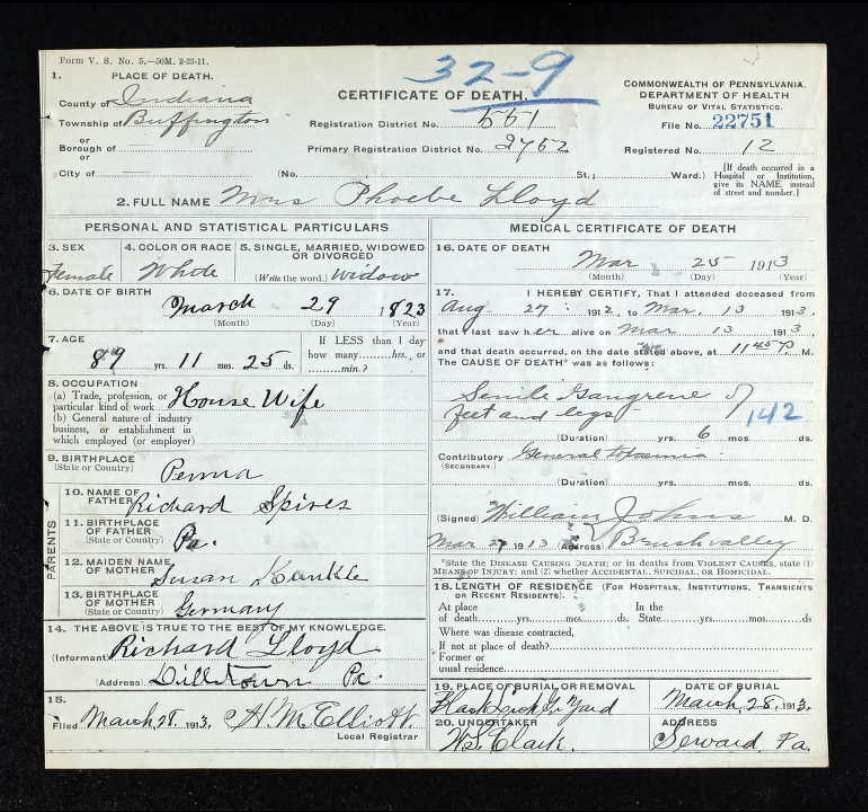 Form V. S. No. 5.—50M. 2-23-11.
32-9
1. PLACE OF DEATH.
County of Indiana
Township of Buffington
or
Borough of
or
City of
CERTIFICATE OF DEATH.
Registration District No. 551
Primary Registration District No. 2752
(No. St.; Ward.)
COMMONWEALTH OF PENNSYLVANIA.
DEPARTMENT OF HEALTH
BUREAU OF VITAL STATISTICS.
File No. 22751
Registered No. 12
[If death occurred in a Hospital or Institution, give its NAME instead of street and number.]
2. FULL NAME Mrs Phoebe Lloyd
PERSONAL AND STATISTICAL PARTICULARS
3. SEX
Female
4. COLOR OR RACE
White
5. SINGLE, MARRIED, WIDOWED
OR DIVORCED
(Write the word.) widow
6. DATE OF BIRTH
March 29 1823
(Month) (Day) (Year)
7. AGE
89 yrs. 11 mos. 25 ds.
If LESS than 1 day
how many hrs. or
min.?
8. OCCUPATION
(a) Trade, profession, or
particular kind of work House Wife
(b) General nature of industry
business, or establishment in
which employed (or employer)
9. BIRTHPLACE
(State or Country)
Penna
PARENTS
10. NAME OF
FATHER Richard Spires
11. BIRTHPLACE
OF FATHER
(State or Country) Pa.
12. MAIDEN NAME
OF MOTHER Susan Kunkle
13. BIRTHPLACE
OF MOTHER
(State or Country) Germany
14. THE ABOVE IS TRUE TO THE BEST OF MY KNOWLEDGE.
(Informant) Richard Lloyd
(Address) Dilltown Pa.
15.
Filed March 28, 1913. H. M. Elliott.
Local Registrar
MEDICAL CERTIFICATE OF DEATH
16. DATE OF DEATH
Mar 25 1913
(Month) (Day) (Year)
17. I HEREBY CERTIFY, That I attended deceased from
Aug 27 1912, to Mar. 13 1913.
that I last saw her alive on Mar 13 1913.
and that death occurred, on the date stated above, at 11 45 P. M.
The CAUSE OF DEATH* was as follows:
Senile Gangrene of
feet and legs
142
(Duration) yrs. 6 mos. ds.
Contributory General
(SECONDARY.)
(Duration) yrs. mos. ds.
(Signed) William Johns M. D.
Mar 27 1913 (Address) Brushvalley
*State the DISEASE CAUSING DEATH; or in deaths from VIOLENT CAUSES, state (1)
MEANS OF INJURY; and (2) whether ACCIDENTAL, SUICIDAL, OR HOMICIDAL.
18. LENGTH OF RESIDENCE (FOR HOSPITALS, INSTITUTIONS, TRANSIENTS
OR RECENT RESIDENTS).
At place In the
of death yrs. mos. ds. State yrs. mos. ds
Where was disease contracted,
If not at place of death?
Former or
usual residence
19. PLACE OF BURIAL OR REMOVAL
Black Lick G. Yard
DATE OF BURIAL
March, 28, 1913.
20. UNDERTAKER
W. S. Clark.
ADDRESS
Seward, Pa.